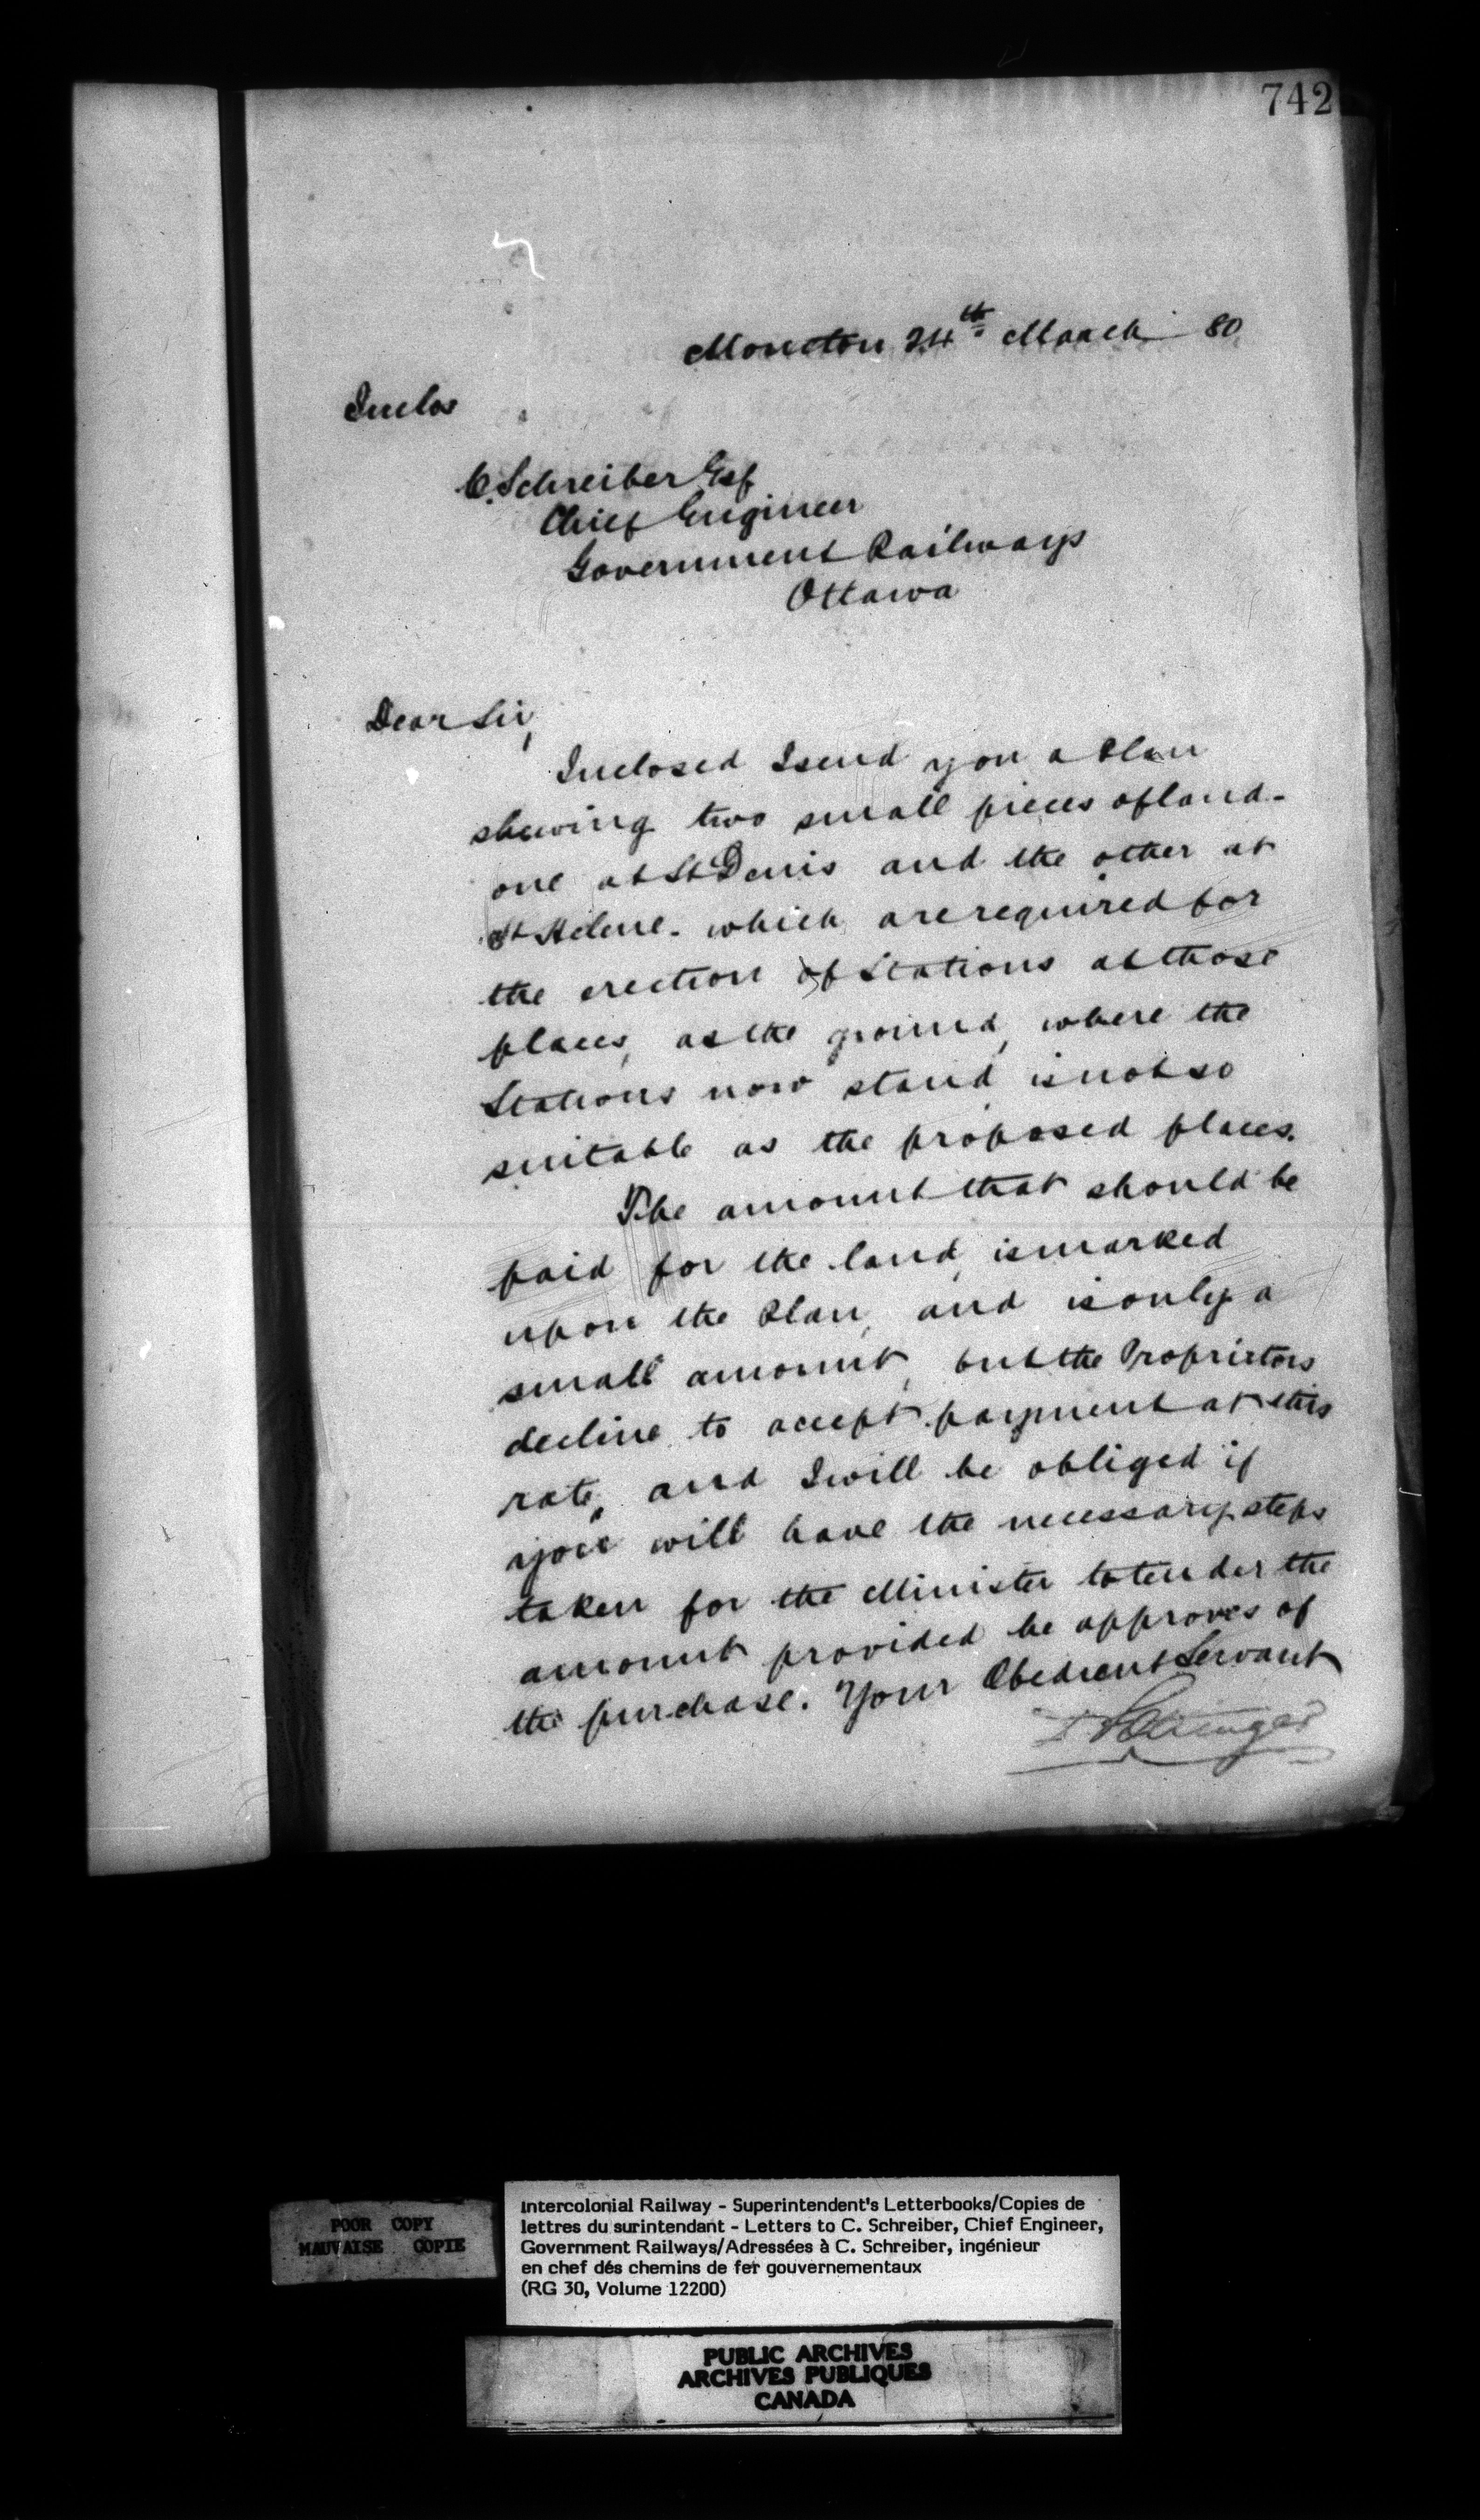 742
Moncton 24th March 80
Inclos
C. Schreiber Esq
Chief Engineer
Government Railways
Ottawa
Dear Sir,
Inclosed I send you a Plan
shewing two small pieces of land -
one at St Denis and the other at
St Helene - which are required for
the erection of Stations at those
places, as the ground, where the
Stations now stand is not so
suitable as the proposed places.
The amount that should be
paid for the land, is marked
upon the Plan, and is only a
small amount, but the Proprietors
decline to accept payment at this
rate, and I will be obliged if
you will have the necessary steps
taken for the Minister to tender the
amount provided he approves of
the purchase. Your Obedient Servant
D Pottinger
POOR COPY
MAUVAISE COPIE
Intercolonial Railway - Superintendent's Letterbooks/Copies de
lettres du surintendant - Letters to C. Schreiber, Chief Engineer,
Government Railways/Adressées à C. Schreiber, ingénieur
en chef dés chemins de fer gouvernementaux
(RG 30, Volume 12200)
PUBLIC ARCHIVES
ARCHIVES PUBLIQUES
CANADA